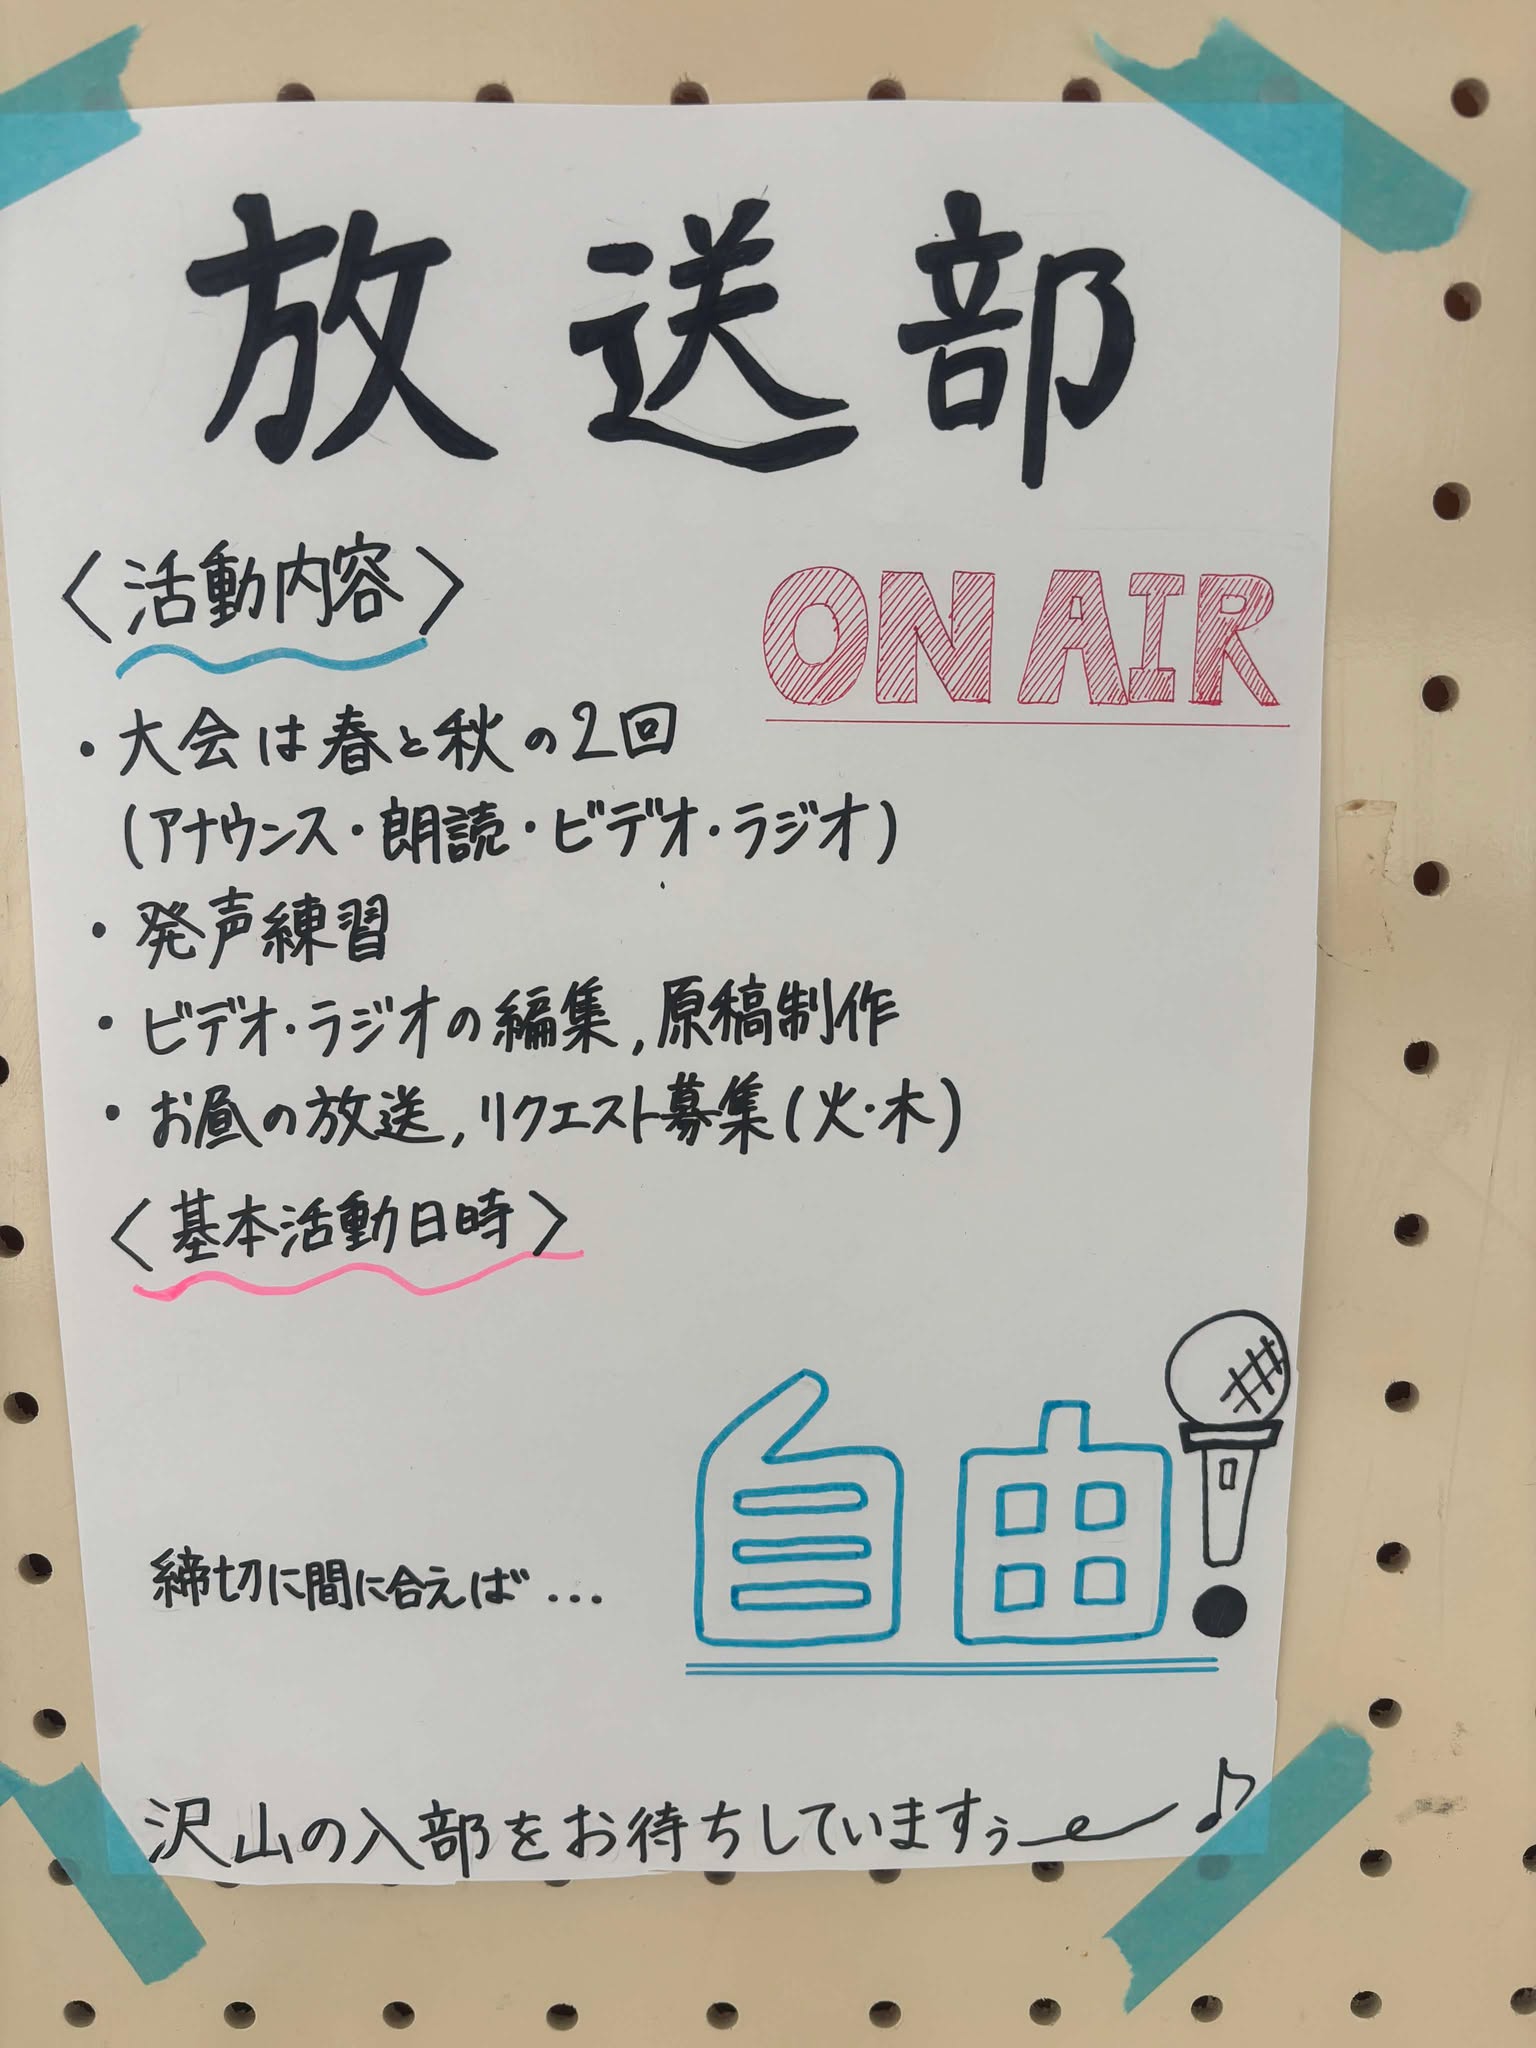 放送部
〈活動内容〉
ON AIR
・大会は春と秋の2回
(アナウンス・朗読・ビデオ・ラジオ)
・発声練習
・ビデオ・ラジオの編集,原稿制作
・お昼の放送,リクエスト募集(火・木)
〈基本活動日時〉
締切に間に合えば…
自由!
沢山の入部をお待ちしていますぅ〜♪